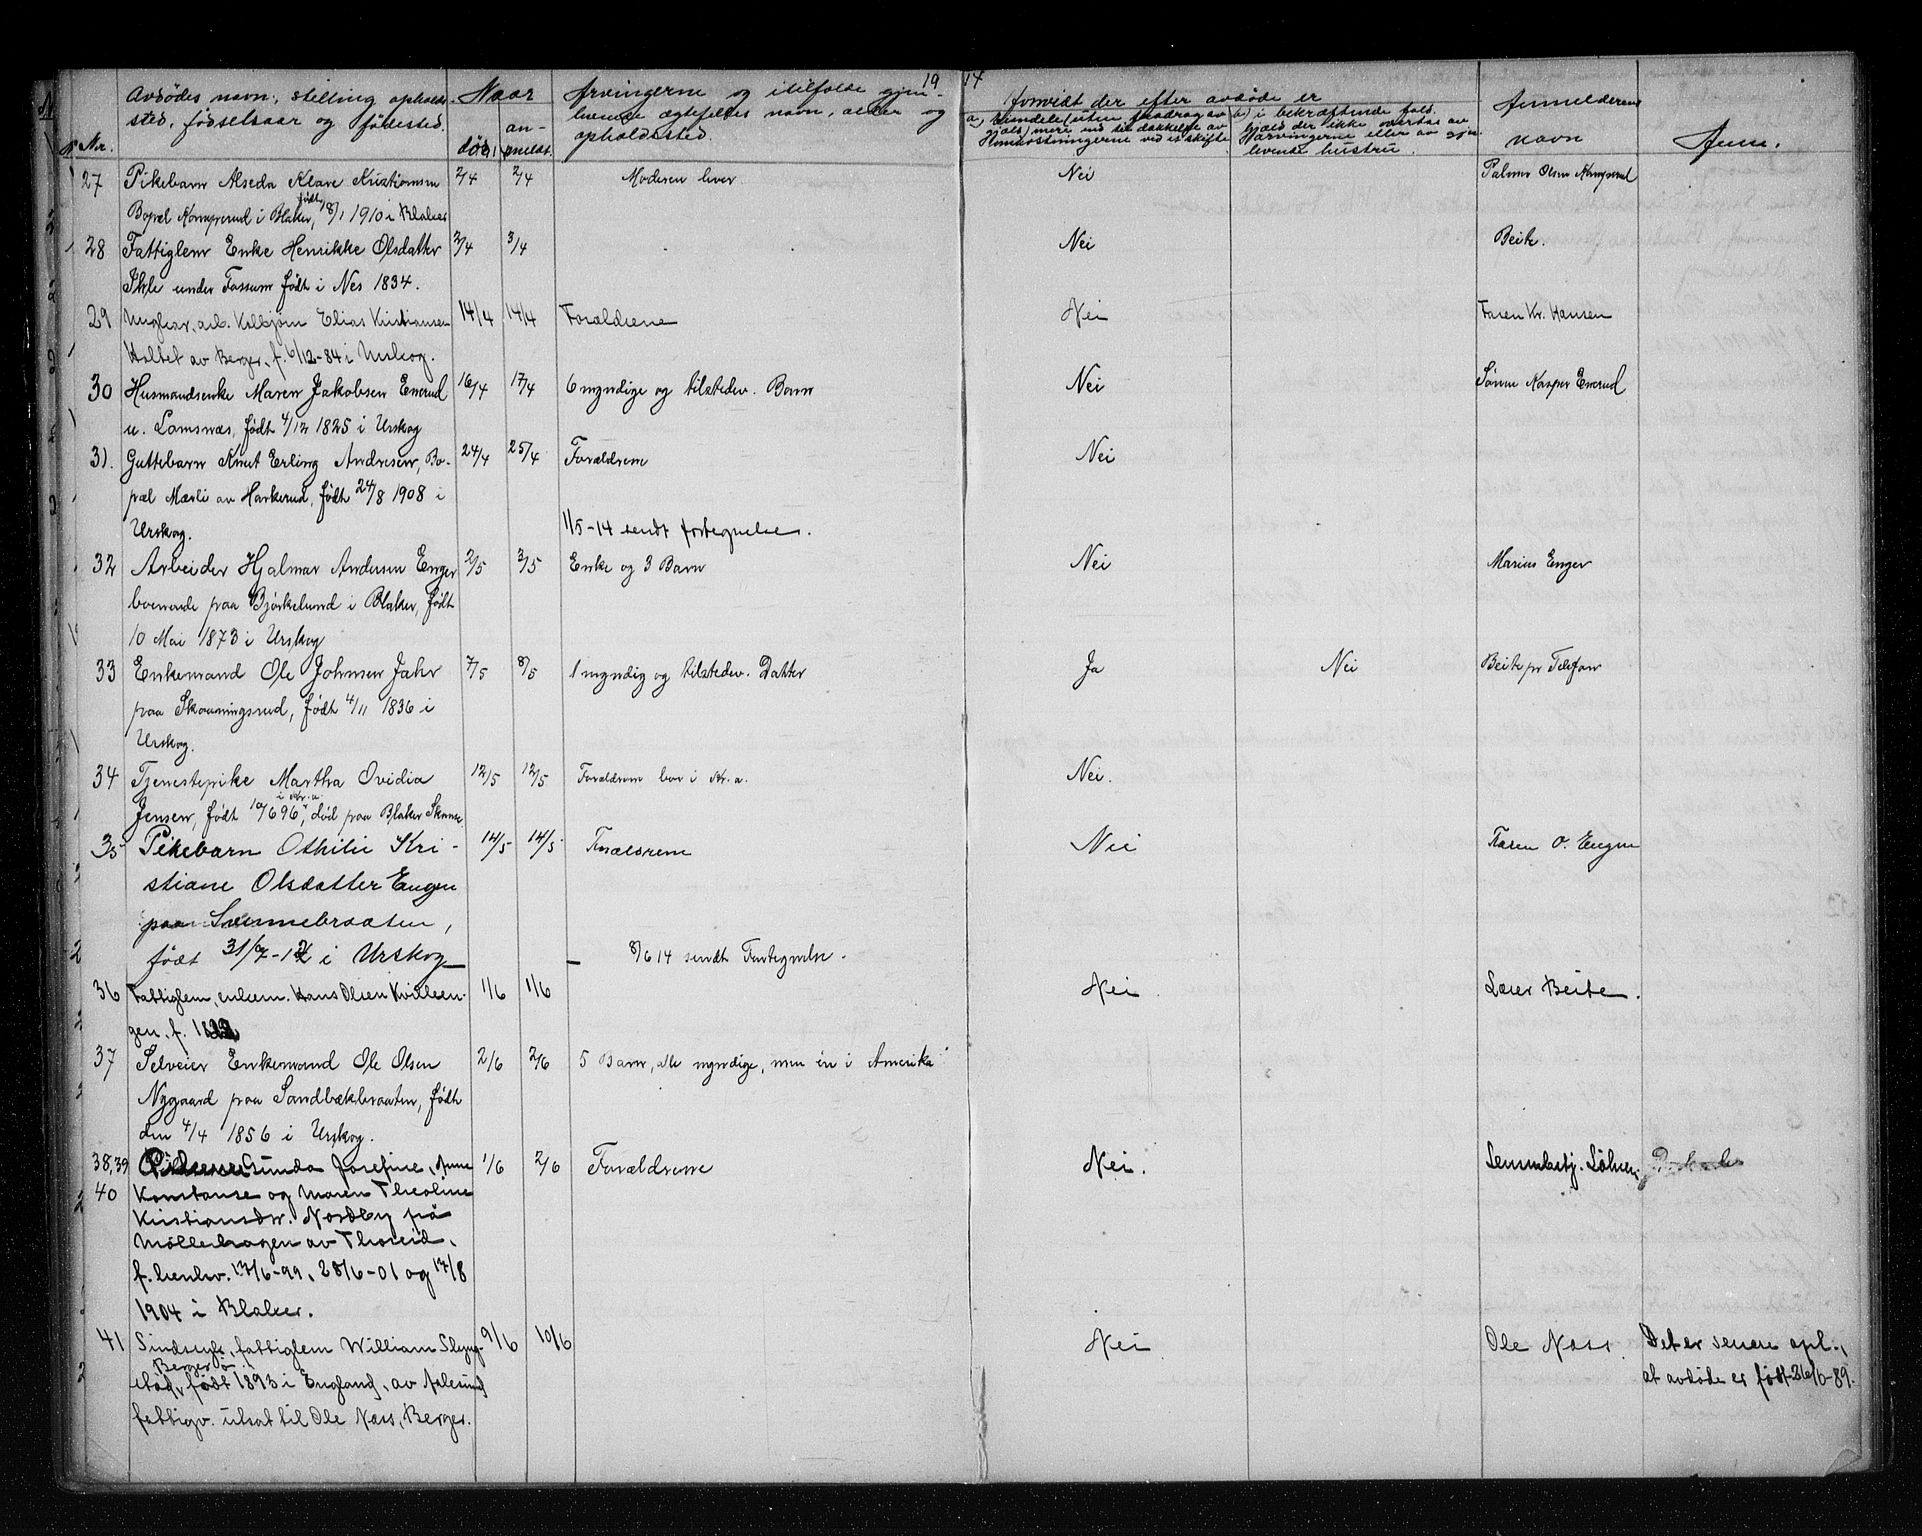 19 14
Nr.
Avdødes navn, stilling, opholds-
sted, fødselsaar og fødested.
Naar
død
an-
meldt.
Arvingerne og itilfælde gjen-
levende ægtefelles navn, alder og
opholdssted.
Hvorvidt der efter avdøde er
a, (uten fradrag av
gjæld) mere end til dækkelse av
omkostningerne ved et skifte
b, i bekræftende fald.
Gjæld der ikke overtas av
arvingerne eller av gjen-
levende hustru.
Anmelderens
navn
Anm.
27 Pikebarn Alseda Klare Kristiansen 2/4 2/4 Moderen lever Nei Palmer Olsen
Bopæl i Blaker, født 18/1 1910 i Blaker
28 Fattiglem Enke Henrikke Olsdatter 2/4 3/4 Nei Beite.
Ihle under Fossum født i Nes 1834.
29 Ungkar, arb. Kolbjørn Elias Kristiansen 14/4 14/4 Forældrene Nei Faren Kr. Hansen
Holtet av Berger, f. 6/12-84 i Urskog.
30 Husmandsenke Maren Jakobsen Enerud 16/4 17/4 6 myndige og tilstedev. Barn Nei Søren Kasper Enerud
u. Lomsnæs, født 4/12 1825 i Urskog
31. Guttebarn Knut Erling Andresen, Bo- 24/4 25/4 Forældrene Nei
pæl Mærli av Harkerud, født 24/8 1908 i
Urskog.
1/5-14 sendt fortegnelse.
32 Arbeider Hjalmar Andersen Enger 2/5 3/5 Enke og 3 Barn Nei Marius Enger
boende paa Bjørkelund i Blaker, født
10 Mai 1873 i Urskog
33 Enkemand Ole Johnsen Jahr 7/5 8/5 1 myndig og tilstedev. Datter Ja Nei Beite pr Telefon
paa Skonningsrud, født 4/11 1836 i
Urskog.
34 Tjenestepike Martha Ovidia 12/5 12/5 Forældrene bor i Kr.a. Nei.
i Kr.a.
Jensen, født 10/6 96, død paa Blaker Skanse
35 Pikebarn Othilie Kri- 14/5 14/5 Forældrene Nei Faren O. Engen
stiane Olsdatter Engen
paa Sæunebraaten,
født 31/7-12 i Urskog
8/6 14 sendt Fortegnelse.
36 Fattiglem, enkem. Hans Olsen Kvilleen- 1/6 1/6 Nei. Lærer Beite.
gen, f. 1822
37 Selveier Enkemand Ole Olsen 2/6 2/6 5 Barn, alle myndige, men én i Amerika
Nygaard paa Sandbækbraaten, født
den 4/4 1856 i Urskog.
38, 39 Gunda Josefine, Anne 1/6 2/6 Forældrene Nei.
40 Konstanse og Maren Theoline
Kristiansdtr. Nordby på
Møllerhagen av Thoreid,
f. henhv. 17/6-99, 28/6-01 og 17/8
1904 i Blaker.
41 Sindssyk, fattiglem William Slyng- 9/6 10/6 Nei Ole Næss. Det er senere opl.,
Berger ø.
stad, født 1893 i England, av Aalesund at avdøde er født 26/6-89.
fattigv. utsat til Ole Næss, Berger.